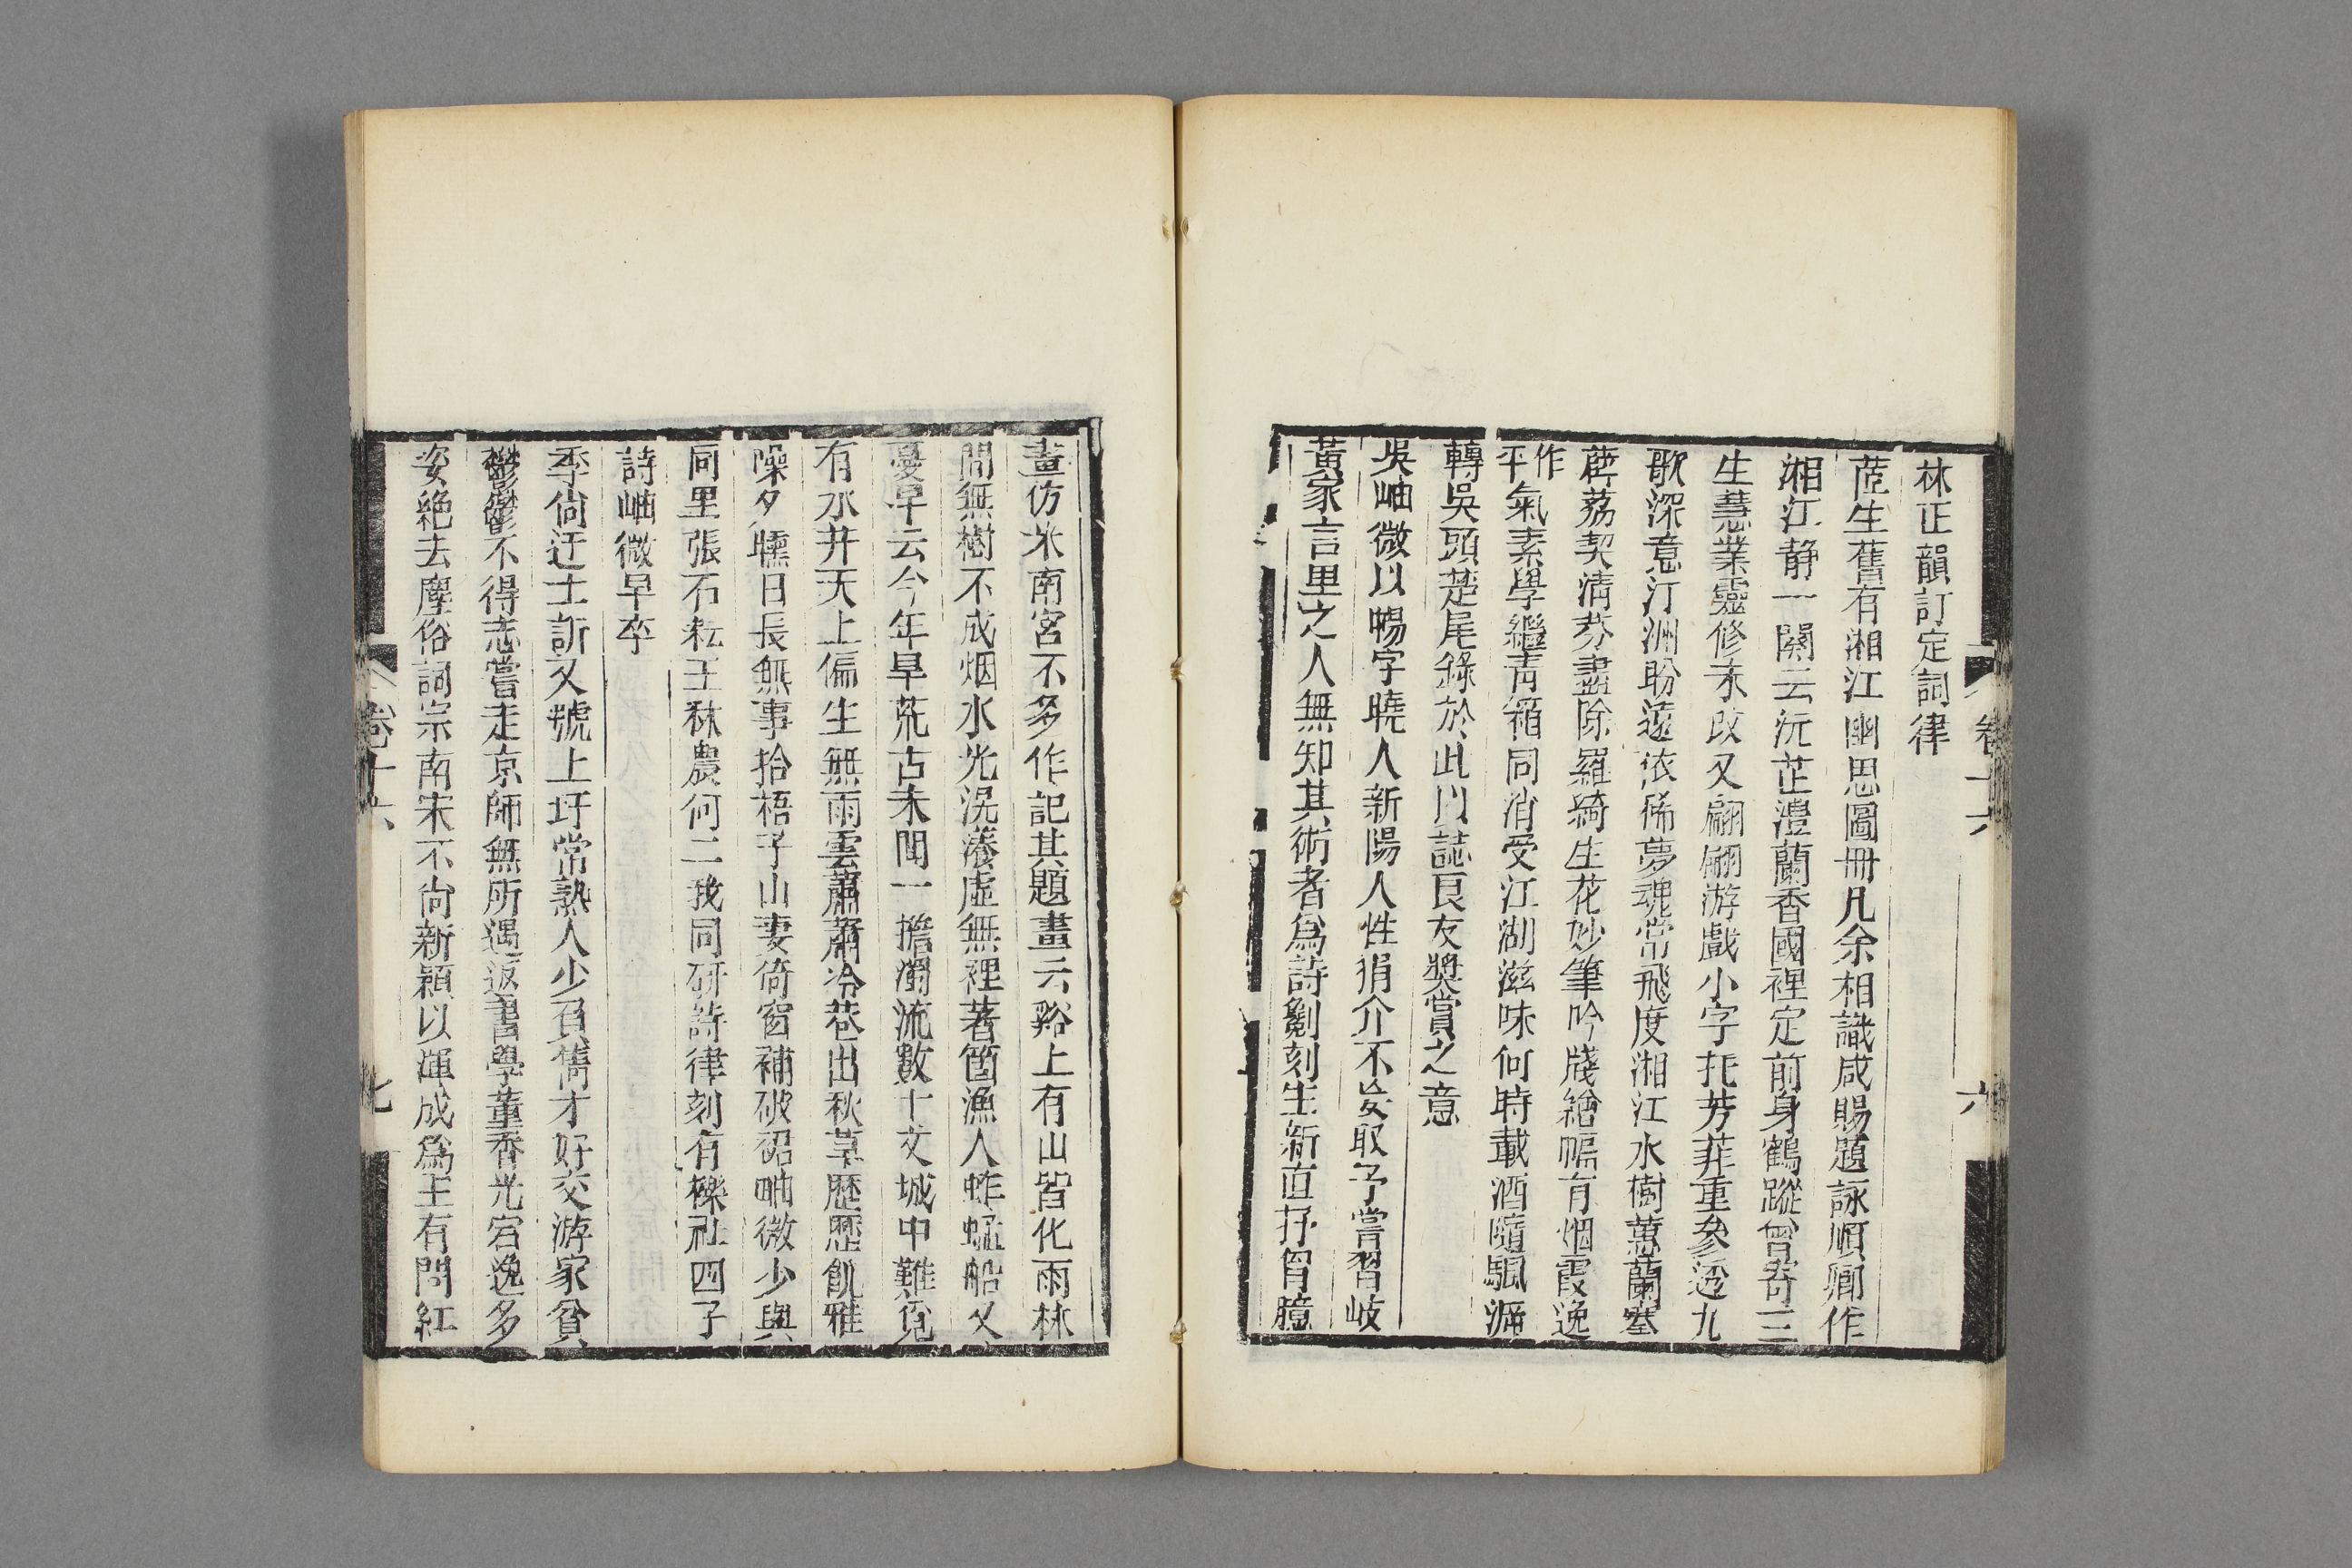 林正韻訂定詞律
茝生舊有湘江幽思圖冊凡余相識咸賜題詠順卿作
湘江靜一闋云沅芷澧蘭香國裡定前身鶴蹤曾寄三
生慧業靈修未改又翩翩游戲小字托芳菲重參透九
歌深意汀洲盼遠依稀夢魂常飛度湘江水樹蕙蘭搴
薜荔契清芬盡除羅綺生花妙筆吟牋繪幅有烟霞逸
作平氣素學繼靑箱同消受江湖滋味何時載酒隨颿漘
轉吳頭楚尾錄於此以誌良友奬賞之意
吳岫微以暢字曉人新陽人性狷介不妄取予嘗習岐
黃家言里之人無知其術者爲詩劖刻生新直抒胷臆
卷十六
六
畫仿米南宮不多作記其題畫云谿上有山皆化雨林
間無樹不成烟水光滉瀁虛無裡著箇漁人蚱蜢船又
憂旱云今年旱荒古未聞一擔溷流數十文城中難覓
有水井天上偏生無雨雲蕭蕭冷巷出秋草歷歷飢雅
噪夕曛日長無事拾梧子山妻倚窗補破裙岫微少與
同里張石耘王秝農何二我同研詩律刻有櫟社四子
詩岫微早卒
季尙迂士訢又號上圩常熟人少負儁才好交游家貧
鬱鬱不得志嘗走京師無所遇返書學董香光宕逸多
姿絕去塵俗詞宗南宋不尙新穎以渾成爲主有問紅
卷十六
七